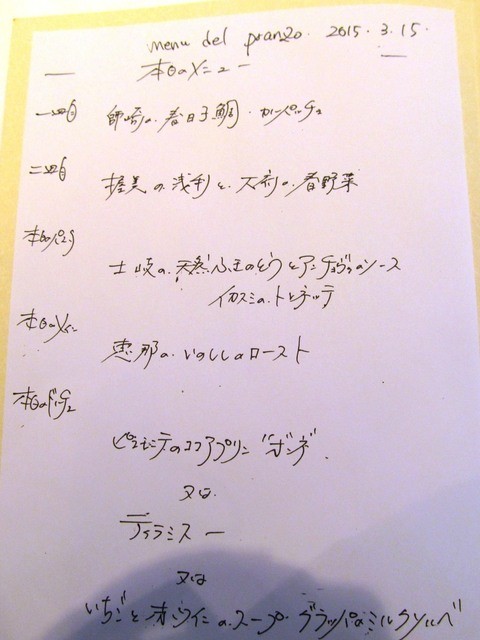 menu del pranzo. 2015. 3. 15.
本日のメニュー
一皿目
師崎の春日子鯛・カルパッチョ
二皿目
渥美の浅利と大府の春野菜
本日のパスタ
土岐の天然ふきのとうとアンチョヴィのソース
イカスミのトレネッテ
本日のメイン
恵那のいのししのロースト
本日のドルチェ
ピエモンテのココアプリン "ボンネ".
又は
ティラミスー
又は
いちごと赤ワインのスープ グラッパのミルクソルベ